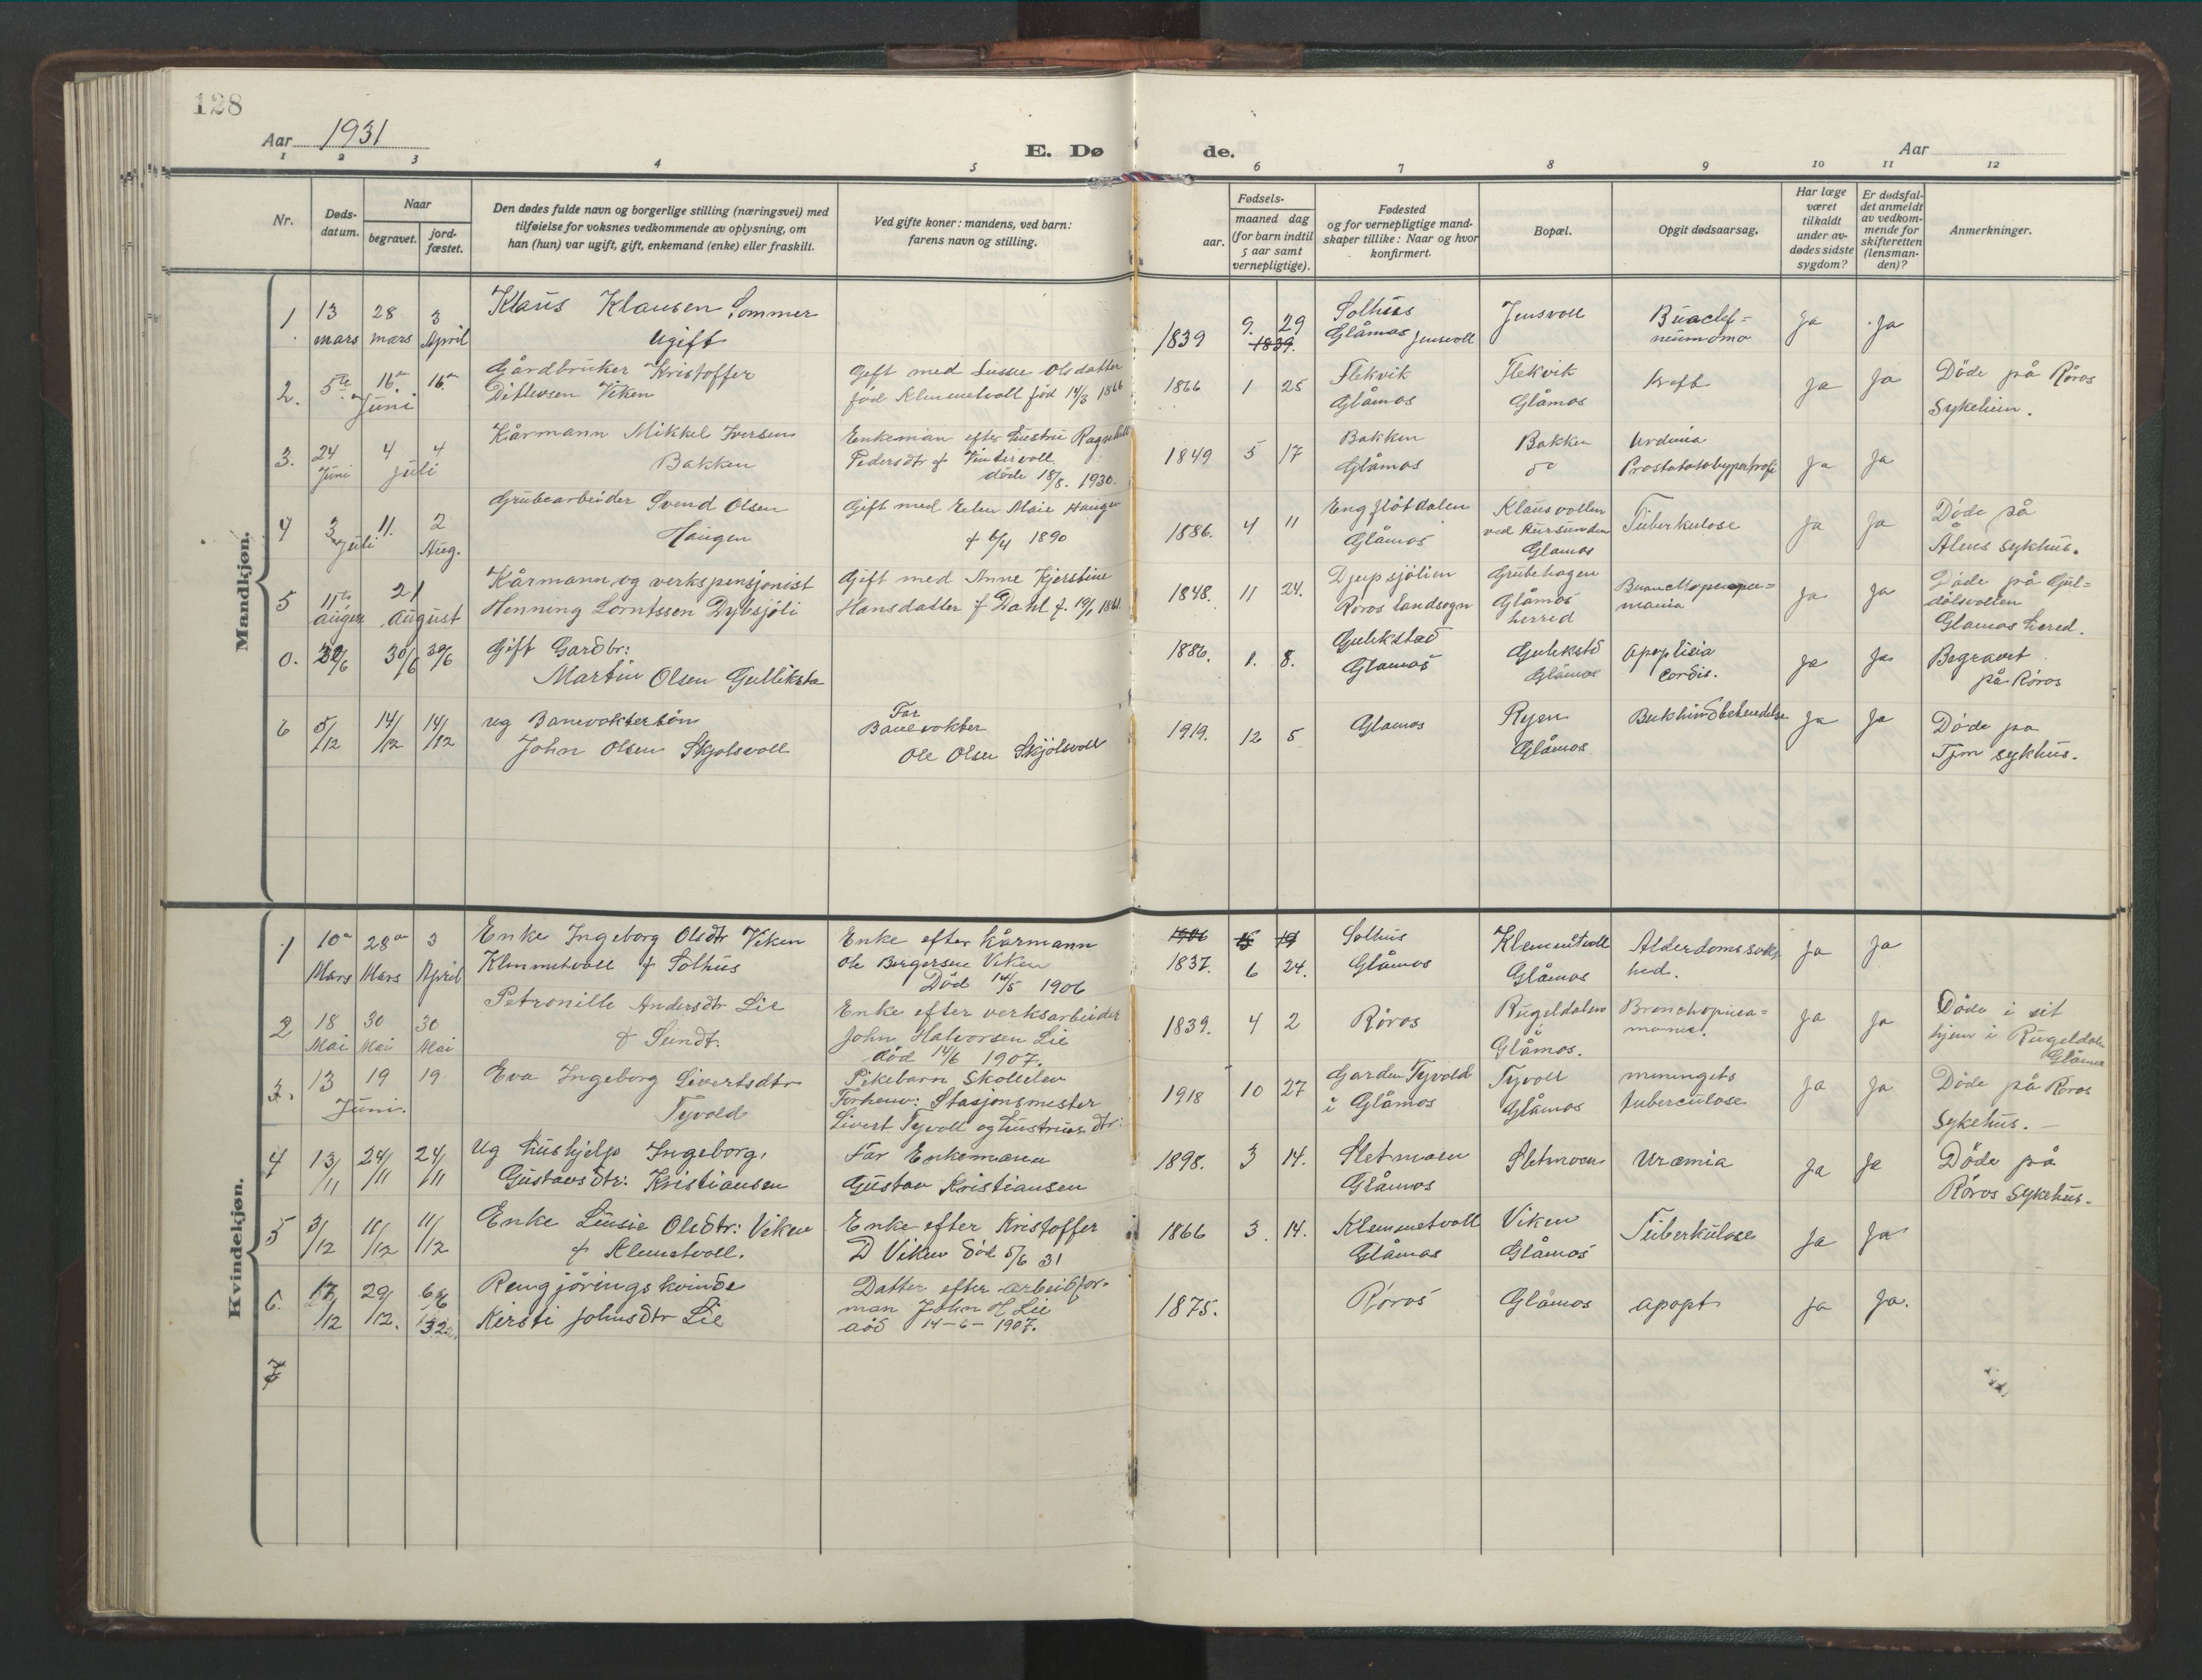 128
Aar 1931
E. Dø de.
Aar
1 2 3 4 5 6 7 8 9 10 11 12
Nr.
Døds-
datum.
Naar
begravet.
jord-
fæstet.
Den dødes fulde navn og borgerlige stilling (næringsvei) med
tilføielse for voksnes vedkommende av oplysning, om
han (hun) var ugift, gift, enkemand (enke) eller fraskilt.
Ved gifte koner: mandens, ved barn:
farens navn og stilling.
Fødsels-
aar.
maaned dag
(for barn indtil
5 aar samt
vernepligtige).
Fødested
og for vernepligtige mand-
skaper tillike: Naar og hvor
konfirmert.
Bopæl.
Opgit dødsaarsag.
Har læge
været
tilkaldt
under av-
dødes sidste
sygdom?
Er dødsfal-
det anmeldt
av vedkom-
mende for
skifteretten
(lensman-
den)?
Anmerkninger.
Mandkjøn.
1 13 28 3 Klaus Klausen Sommer 1839 9. 29 Solhus Jensvoll Ja Ja
mars mars April Ugift 1839. Glåmos Jensvoll
2. 5te 16 16 Gårdbruker Kristoffer Gift med Olsdatter 1866 1 25 Flekvik Flekvik kreft Ja Ja Döde på Röros
Juni Ditlevsen Viken født Klemmetvoll född 14/3 1866 Glåmos Glåmos Sykehus.
3. 24 4 4 Kårmann Mikkel Iversen Enkeman efter hustru Ragnhild 1849 5 17 Bakken Bakken Ja Ja
Juni Juli Bakken Pedersdtr f Vintervoll Glåmos do Prostatahypertrofi
döde 18/8. 1930.
4 3 11. 2 Grubearbeider Svend Olsen Gift med Elen Marie Hauger 1886. 4 11 Engflötdalen Klausvollen Tuberkulose Ja Ja Döde på
Juli Aug. Haugen f 6/4 1890 Glåmos ved Aursunden Ålens sykhus.
Glåmos
5 11te 21 Kårmann og verkspensjonist Gift med Anne Kjerstine 1848. 11 24. Djupsjölien Grubehagen Ja Ja Döde på Gul-
august Henning Lorntssen Dybsjöli Hansdatter f Dahl f. 19/1 1861 Röros landsogn Glåmos herred dalsvollen
Glåmos hered.
0. 30/6 30/6 Gift Gardbr: 1886. 1. 8. Gulikstad Gulikstd Apoplexia Ja Ja Begravet
Martin Olsen Gulliksta Glåmos Glåmos Cordis. på Röros
6 5/12 14/12 14/12 ug Banevoktersön Far 1919. 12 5 Glamos Ryen Ja Ja Döde på
John Olsen Skjolsvoll Banevokter Glåmos sykhus.
Ole Olsen Skjölsvoll
Kvindekjøn.
1 10 28 3 Enke Ingeborg Olsdtr Viken Enke efter kårmann 1906 Solhus Klemmetvoll Alderdomssvak- Ja Ja
Mars Mars April Klemmetvoll f Solhus Ole Bergersen Viken 1837. 6 24. Glåmos Glåmos hed.
Död 14/5 1906
2 18 30 30 Petronille Andersdtr Lie Enke efter verksarbeider 1839. 4 2 Röros Rugeldalen Bronchopneu- Ja Ja Döde i sit
Mai Mai Mai f Sundt. John Halvorsen Lie i hjem i Rugeldalen
död 14/6 1907. Glåmos. Glåmos
3. 13 19 19 Eva Ingeborg Sivertsdtr Pikebarn Skoleelev 1918 10 27 Garden Tyvold Tyvoll meningets Ja Ja Döde på Röros
Juni. Tyvold Forhenv: Stasjonsmester i Glåmos Glåmos tuberculose Sykehus. —
Sivert Tyvoll og hustrus dtr:
4 13/11 24/11 24/11 Ug hushjelp Ingeborg, Far Enkemann 1898. 3 14. Sletmoen Sletmoen Uræmia Ja Ja Döde på
Gustavsdtr: Kristiansen Gustav Kristiansen Glåmos Röros Sykehus.
5 3/12 11/12 11/12 Enke Lussie Olsdtr: Viken Enke efter Kristoffer 1866 3. 14. Klemmetvoll Viken Tuberkulose Ja Ja
f Klemetvoll. D Viken död 5/6 31 Glåmos Glåmos
6. 17/12 29/12. 6/6 32 Rengjöringskvinde Datter efter arbeidfor- 1875. Röros Glåmos apopt Ja Ja.
Kirsti Johnsdtr Lie man John H Lie
död 14-6-1907.
7